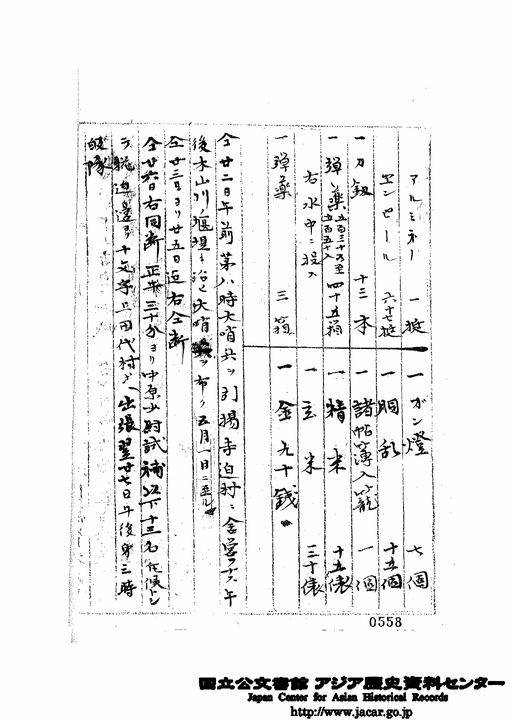 アルミネー 一挺
エンピール 六十七挺
一刀釼 十三本
一弾薬 五百三十乃至五百五十入 四十五箱
右水中ニ投入
一弾薬 三箱
一ガン燈 七個
一胴乱 十五個
一諸帖簿入籠 一個
一精米 十五俵
一玄米 三十俵
一金九十銭
仝廿二日午前第八時大哨兵ヲ引揚寺迫村ニ舎営ヲナス午
後木山川堰堤ニ沿ヒ大哨ヲ布ク五月一日ニ至ル
仝廿三日ヨリ廿五日迄右仝断
仝廿六日右同断正午三十分ヨリ中原少尉試補以下十三名斥候トシ
テ龍迫邊ヨリ十文字上田代村ヘ出張翌廿七日午後第三時
帰隊
0558
国立公文書館 アジア歴史資料センター
Japan Center for Asian Historical Records
http://www.jacar.go.jp